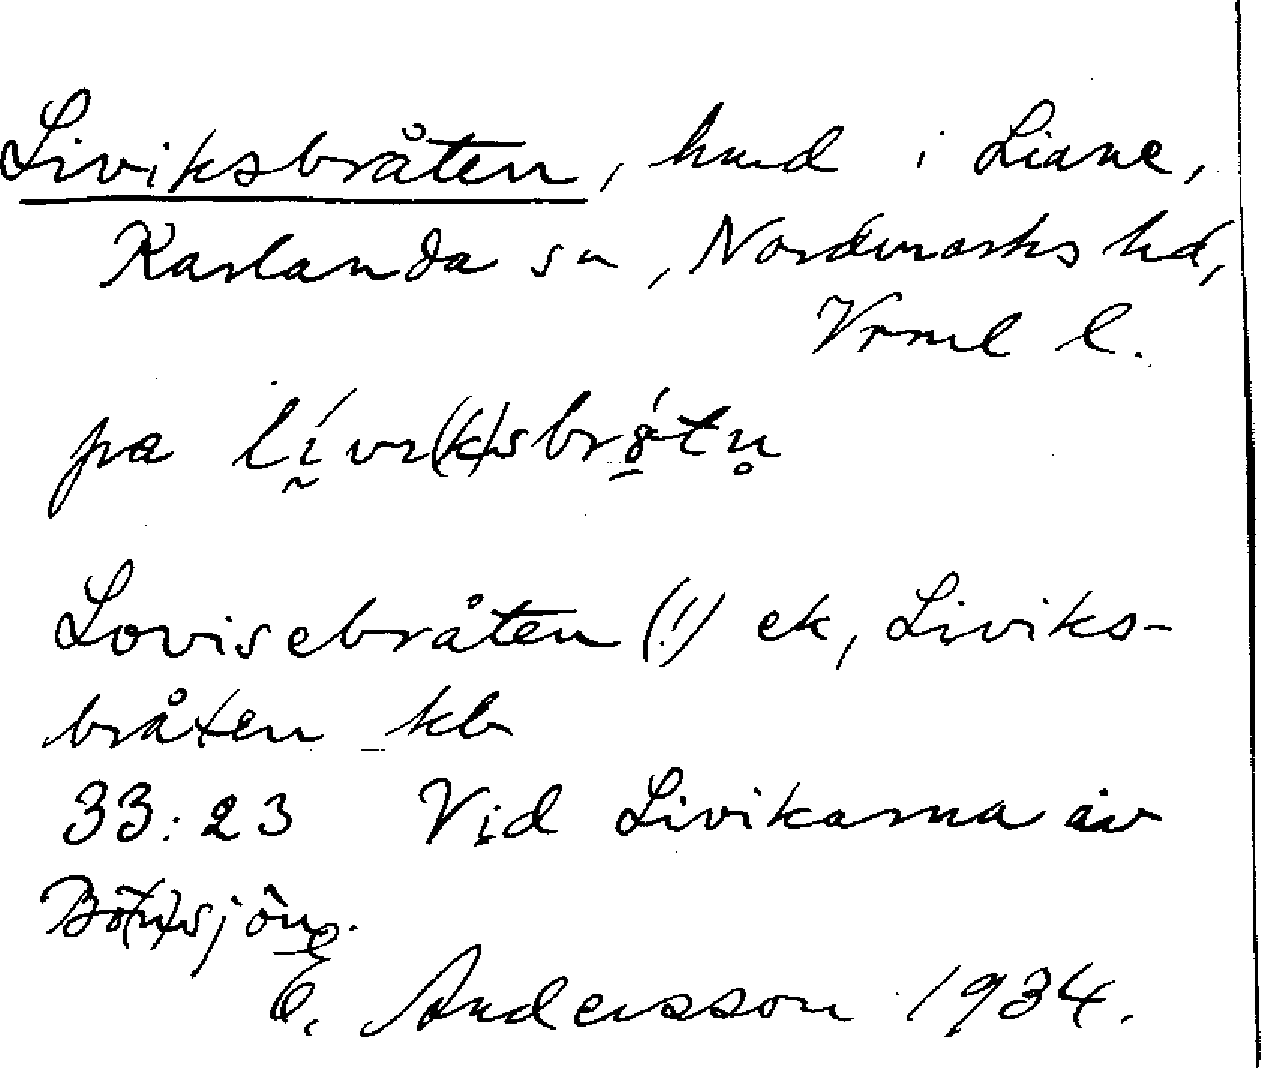 Liviksbråten, hmd i Liane,
Karlanda sn, Nordmarks hd,
Vrml l.
pa lívi(k)sbrǫ́tn̥
Lovisebråten (!) ek, Liviks-
bråten kb
33:23 Vid Livikarna av
sjön.
E. Andersson 1934.